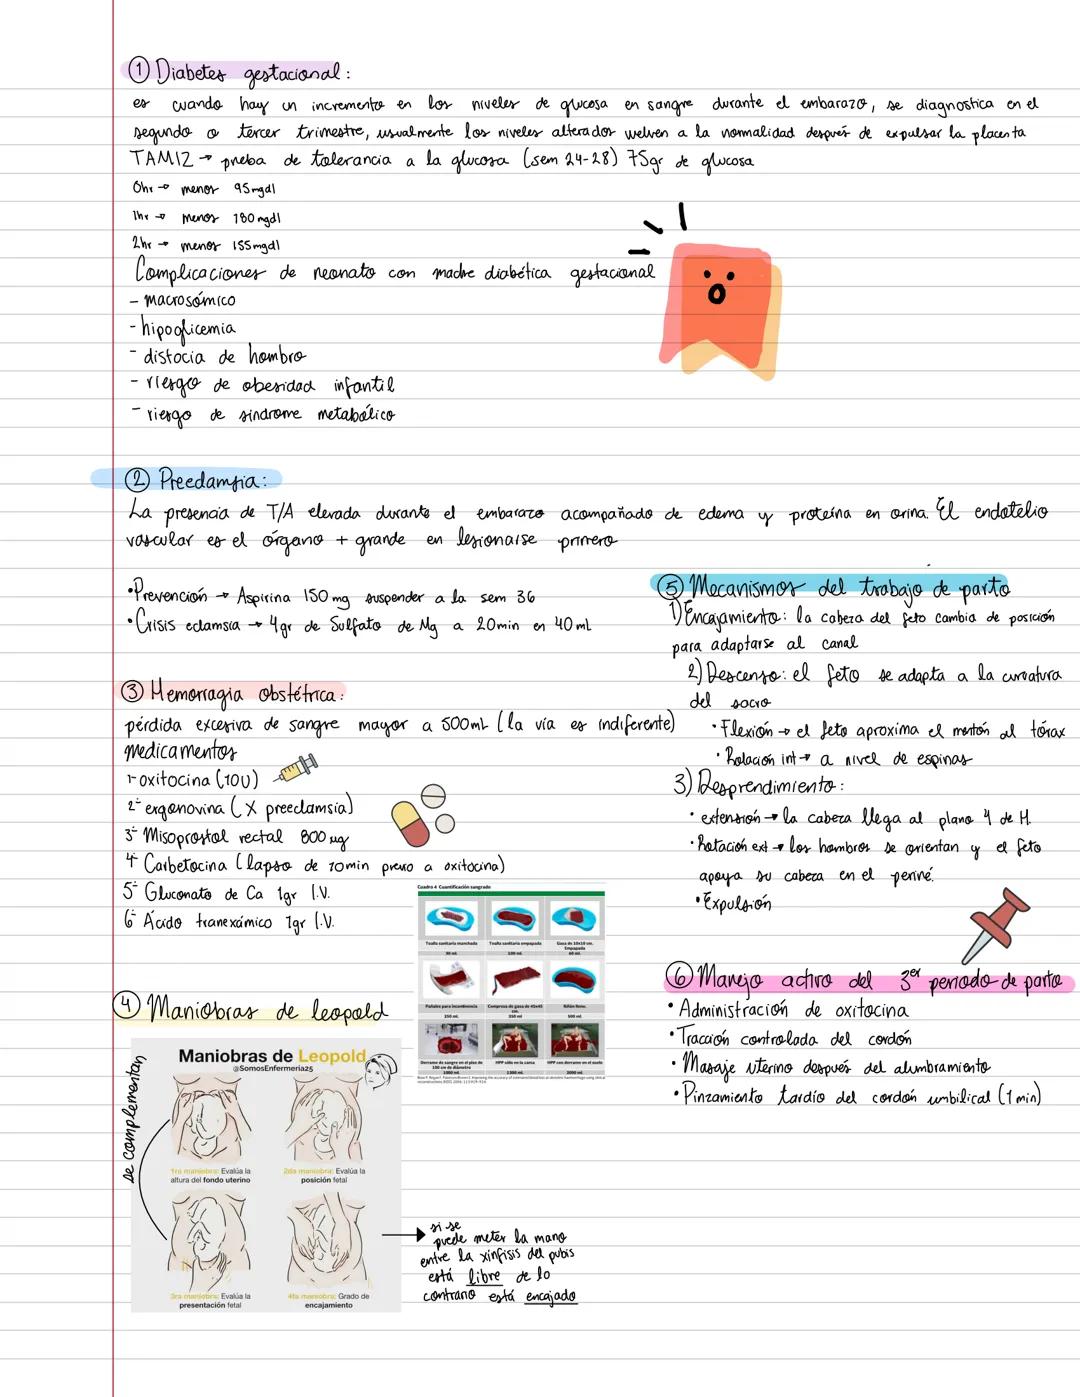 ① Diabetes gestacional:
es cuando hay un incremento en los niveles de glucosa en sangre durante el embarazo, se diagnostica en el
segundo o tercer trimestre, usualmente los niveles alterados vuelven a la normalidad después de expulsar la placenta
TAMIZ → prueba de tolerancia a la glucosa (sem 24-28) 75gr de glucosa
0hr → menor 95mgdl
1hr → menor 180mgdl
2hr → menor 155mgdl
Complicaciones de neonato con madre diabética gestacional
- macrosómico
- hipoglicemia
- distocia de hombro
- riesgo de obesidad infantil
- riesgo de sindrome metabólico
② Preeclamsia:
La presencia de T/A elevada durante el embarazo acompañado de edema y proteína en orina. El endotelio
vascular es el órgano + grande en lesionarse primero
•Prevención → Aspirina 150 mg suspender a la sem 36
•Crisis eclamsia → 4gr de Sulfato de Mg a 20min en 40ml
③ Hemorragia obstétrica:
pérdida excesiva de sangre mayor a 500ml (la vía es indiferente)
medicamentos
1- oxitocina (10U)
2- ergonovina (X preeclamsia)
3- Misoprostol rectal 800 ug
4- Carbetocina (lapso de 10min previo a oxitocina)
5- Gluconato de Ca 1gr I.V.
6- Ácido tranexámico 1gr I.V.
Cuadro 4 Cuantificación sangrado
Toalla sanitaria manchada
30 ml.
Toalla sanitaria empapada
100 ml.
Gasa de 10x10 cm. Empapada
60 ml.
Pañales para incontinencia
250 ml.
Compresa de gasa de 45x45 cm.
350 ml
Riñón lleno.
500 ml.
Derrame de sangre en el piso de 100 cm de diámetro
1000 ml
HPP sólo en la cama
1000 ml.
HPP con derrame en el suelo
2000 ml.
④ Maniobras de leopold
Maniobras de Leopold
@SomosEnfermeria25
se complementan
1ra maniobra: Evalúa la altura del fondo uterino
2da maniobra: Evalúa la posición fetal
3ra maniobra: Evalúa la presentación fetal
4ta maniobra: Grado de encajamiento
si se
puede meter la mano
entre la xínfisis del pubis
está libre de lo
contrario está encajado
⑤ Mecanismos del trabajo de parto
1) Encajamiento: la cabeza del feto cambia de posición
para adaptarse al canal
2) Descenso: el feto se adapta a la curvatura
del sacro
• Flexión → el feto aproxima el mentón al tórax
• Rotación int → a nivel de espinas
3) Desprendimiento:
• extensión → la cabeza llega al plano 4 de H.
• Rotación ext → los hombros se orientan y el feto
apoya su cabeza en el periné.
• Expulsión
⑥ Manejo activo del 3er periodo de parto
• Administración de oxitocina
• Tracción controlada del cordón
• Masaje uterino después del alumbramiento
• Pinzamiento tardío del cordón umbilical (1 min)